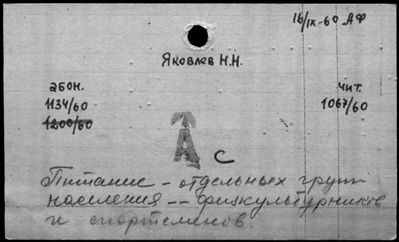 16/IX-60 АФ
Яковлев Н.Н.
абон.
1134/60
1200/60
чит.
1067/60
А с
Питание - отдельных групп
населения -- физкультурников
и спортсменов.